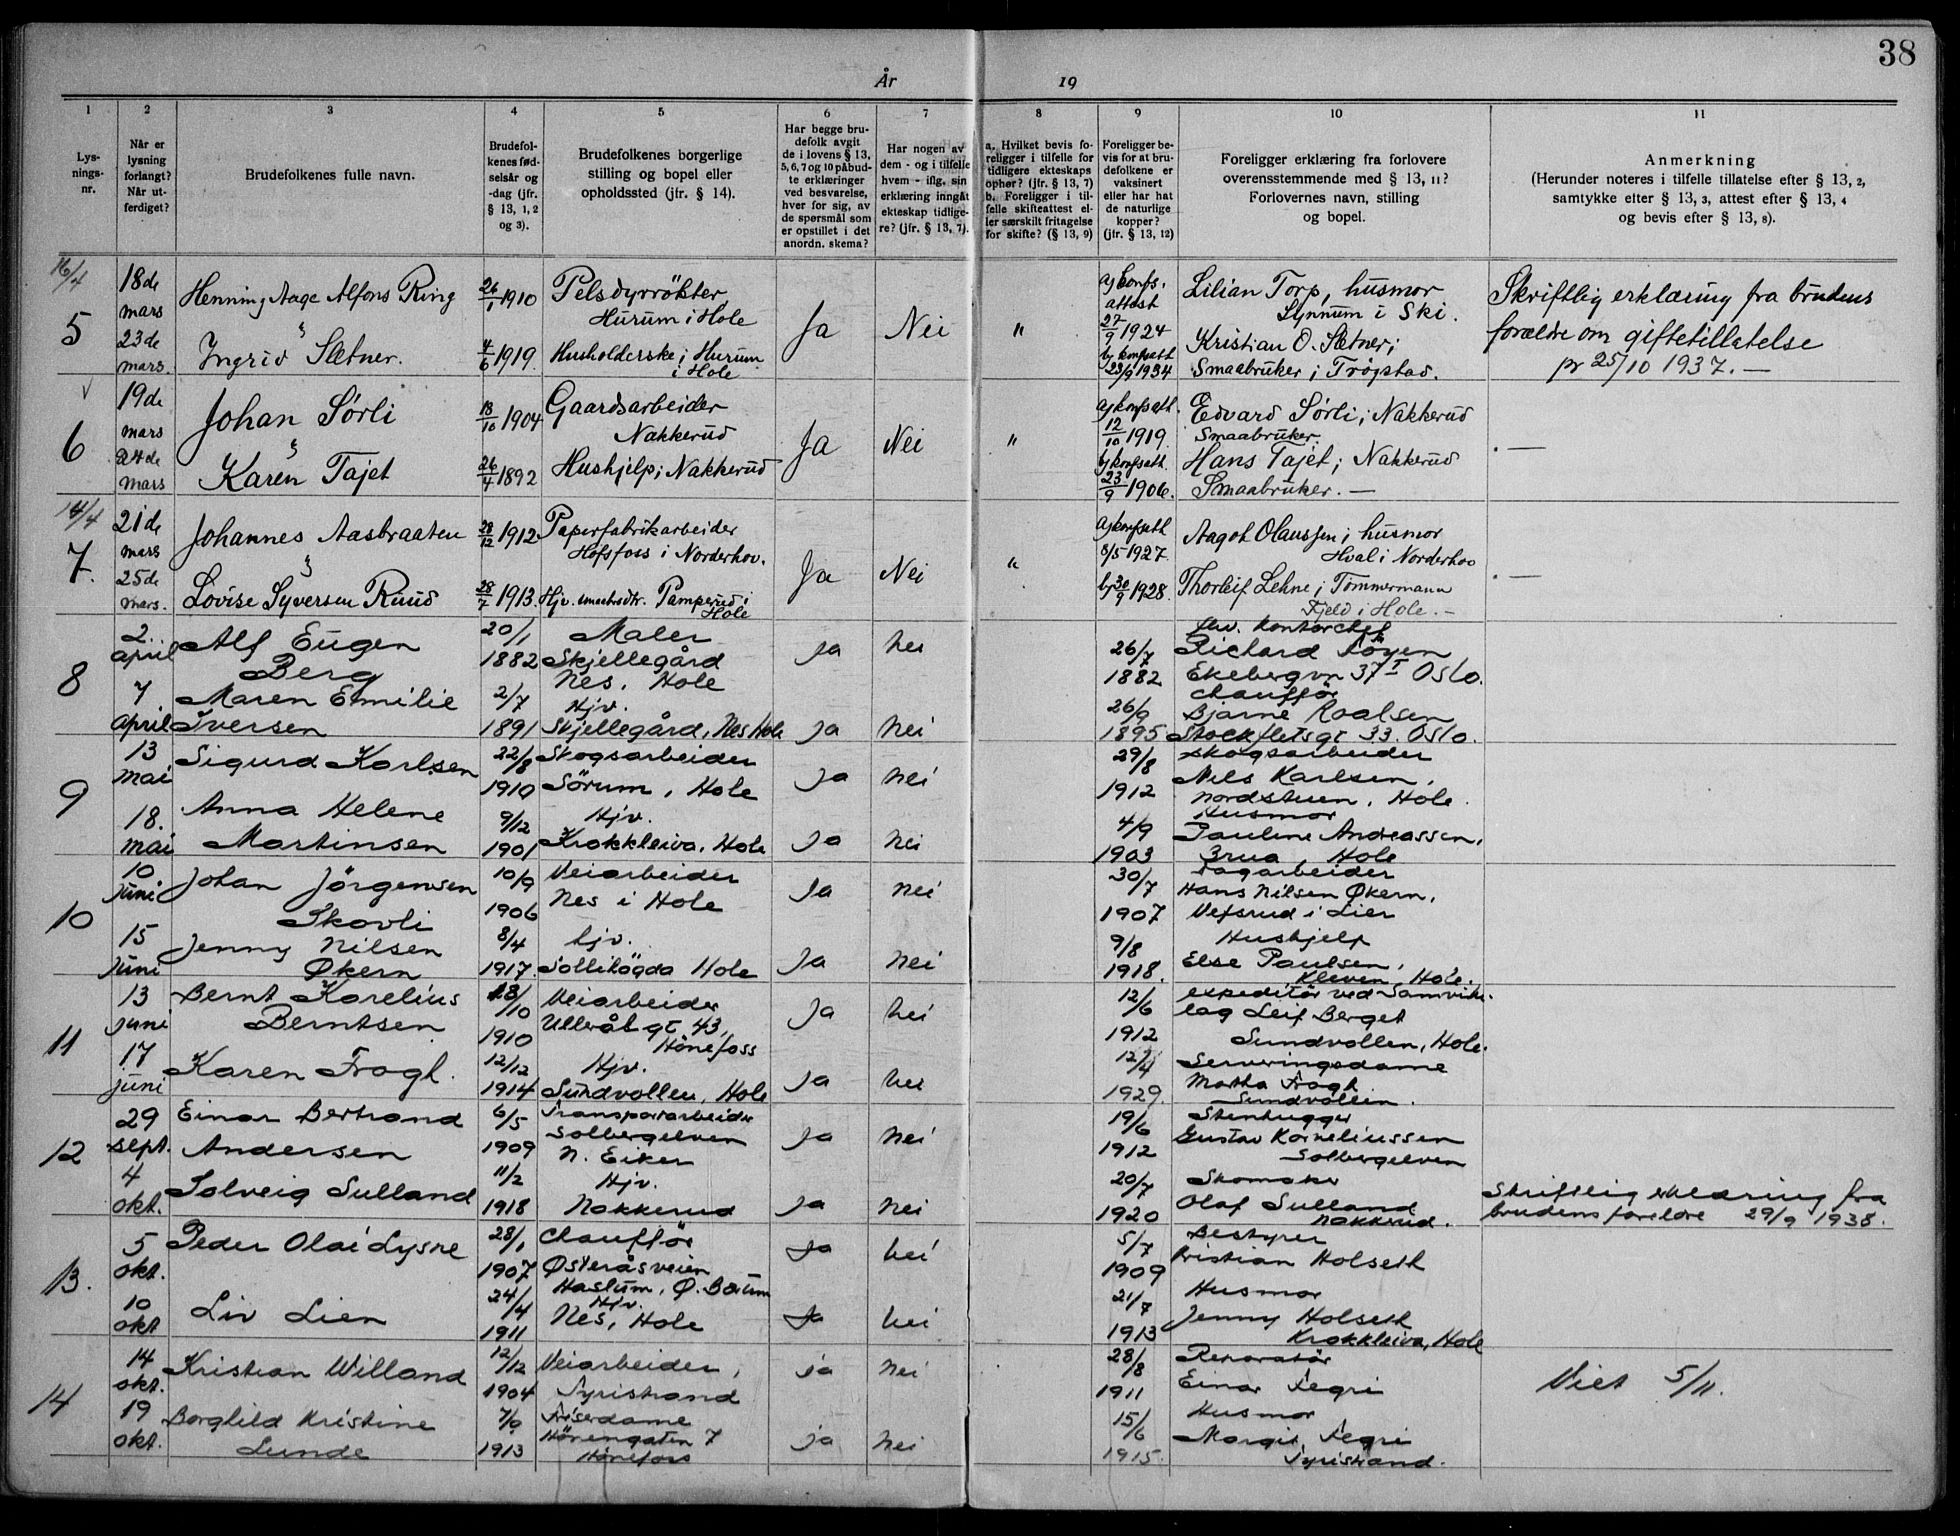 38
År 19
1 2 3 4 5 6 7 8 9 10 11
Lys-
nings-
nr.
Når er
lysning
forlangt?
Når ut-
ferdiget?
Brudefolkenes fulle navn.
Brudefol-
kenes fød-
selsår og
-dag (jfr.
§ 13, 1, 2
og 3).
Brudefolkenes borgerlige
stilling og bopel eller
opholdssted (jfr. § 14).
Har begge bru-
defolk avgit
de i lovens § 13,
5, 6, 7 og 10 påbud-
te erklæringer
ved besvarelse,
hver for sig, av
de spørsmål som
er opstillet i det
anordn. skema?
Har nogen av
dem - og i tilfelle
hvem - iflg. sin
erklæring inngåt
ekteskap tidlige-
re? (jfr. § 13, 7).
a. Hvilket bevis fo-
religger i tilfelle for
tidligere ekteskaps
ophør? (jfr. § 13, 7)
b. Foreligger i til-
felle skifteattest el-
ler særskilt fritagelse
for skifte? (§ 13, 9)
Foreligger be-
vis for at bru-
defolkene er
vaksinert
eller har hat
de naturlige
kopper?
(jfr. § 13, 12)
Foreligger erklæring fra forlovere
overensstemmende med § 13, 11?
Forlovernes navn, stilling
og bopel.
Anmerkning
(Herunder noteres i tilfelle tillatelse efter § 13, 2,
samtykke efter § 13, 3, attest efter § 13, 4
og bevis efter § 13, 8).
16/4
5
18de
mars
23de
mars.
Henning Aage Alfons Ring
&
Ingrid Sletner.
26/1 1910
4/6 1919.
Pelsdyrrökter
Hurum i Hole
Husholderske; Hurum
i Hole
Ja
Nei
"
a) konfs.
attest
27/9 1924
b) konfsatt
23/9 1934
Lilian Torp, husmor
i Ski.
Kristian O. Sletner;
Smaabruker; Trögstad.
Skriftlig erklæring fra brudens
forældre om giftetillatelse
pr 25/10 1937. —
√
6
19de
mars
24de
mars
Johan Sørli
&
Karen Tajet
18/10 1904
26/4 1892
Gaardsarbeider
Nakkerud
Hushjelp; Nakkerud
Ja
Nei
"
a) konfsatt.
12/10 1919.
b) konfsatt.
23/9 1906.
Edvard Sørli; Nakkerud
Smaabruker.
Hans Tajet; Nakkerud
Smaabruker. —
. —
14/4
7.
21de
mars
25de
mars.
Johannes Aasbraaten
&
Lovise Syversen Ruud
28/12 1912
28/7 1913.
Papirfabrikarbeider
Hofsfoss i Norderhov.
Hjv. Pamperud i
Hole
Ja
Nei
"
a) konfsatt
8/5 1927.
b) 30/9 1928.
Aagot Olaussen; husmor
Hval i Norderhov
Thorleif Lehne; Tömmermann
Fjeld i Hole. —
. —
8
2.
april
7
april
Alf Eugen
Berg
Maren Emilie
Iversen
20/1
1882
2/7
1891
Maler
Skjellegård
Nes, Hole
Hjv.
Skjellegård, Nes Hole
Ja nei
Ja nei
26/7
1882
26/9
1895
kontorchef
Richard Röyen
Ekebergvn 37 I Oslo.
Chaufför
Bjarne Roalsen
Stockfletsgt 33. Oslo.
9
13
mai
18.
mai
Sigurd Karlsen
Anna Helene
Martinsen
22/8
1910
9/12
1901
Skogsarbeider
Sörum, Hole
Hjv.
Krokkleiva, Hole
Ja nei
Ja nei
29/8
1912
4/9
1903
Skogsarbeider
Nils Karlsen,
Nordstuen, Hole.
Husmor
Pauline Andreassen,
Brua, Hole
10
10
juni
15
juni
Johan Jörgensen
Skovli
Jenny Nilsen
Økern
10/9
1906
8/4
1917.
Veiarbeider
Nes i Hole
hjv.
Sollihögda Hole
Ja nei
Ja nei
30/7
1907
9/8
1918.
Sagarbeider
Hans Nilsen Økern,
Vefsrud i Lier
Hushjelp
Else Paulsen,
Kleven, Hole.
11
13
juni
17
juni
Bernt Karelius
Berntsen
Karen Fragt.
18/10
1910
12/12
1914
Veiarbeider
Ullerål gt 43,
Hönefoss
Hjv.
Sundvollen, Hole
Ja nei
Ja nei
12/6
1912
12/4
1929.
expeditör ved Samvirke-
lag Leif Berget
Sundvollen, Hole.
Serveringsdame
Martha Fragt
Sundvollen.
12
29
sept.
4
okt.
Einar Bertrand
Andersen
Solveig Sulland
6/5
1909
11/2
1918
Transportarbeider
Solbergelven
N. Eiker
Hjv.
Nakkerud
Ja nei
Ja nei
19/6
1912
20/7
1920
Stenhugger
Gustav Korneliussen
Solbergelven
Skomaker
Olaf Sulland
Nakkerud.
Skriftlig erklæring fra
brudens foreldre 29/9 1938.
13.
5
okt.
10
okt
Peder Olai Lysne
Liv Lien
28/1
1907
24/4
1911
Chaufför
Østeråsveien
Haslum, Ø. Bærum
Hjv.
Nes, Hole
Ja nei
Ja nei
5/7
1909
21/7
1913
Bestyrer
Kristian Holseth
Husmor
Jenny Holseth
Krokkleiva, Hole
14
14
okt.
19
okt.
Kristian Willand
Borghild Kristine
Lunde
12/12
1904
7/9
1913
Veiarbeider,
Tyristrand
Friserdame
Hönengaten 7
Hönefoss
ja nei
ja nei
28/8
1911
15/6
1915.
Reparatör
Einar Fegri
Husmor
Margit Fegri
Tyristrand.
Viet 5/11.